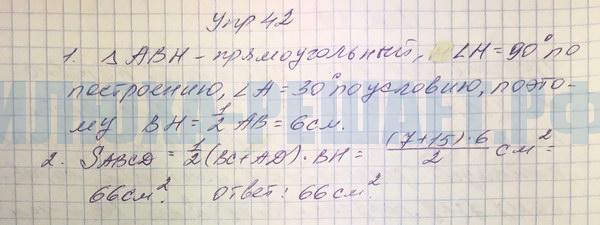 Упр 42
1. △ ABH - прямоугольный, ∠H = 90° по
построению, ∠A = 30° по условию, поэто-
му BH = 1/2 AB = 6 см.
2. SABCD = 1/2 (BC + AD) · BH = (7+15)·6/2 см² =
66 см². Ответ: 66 см².